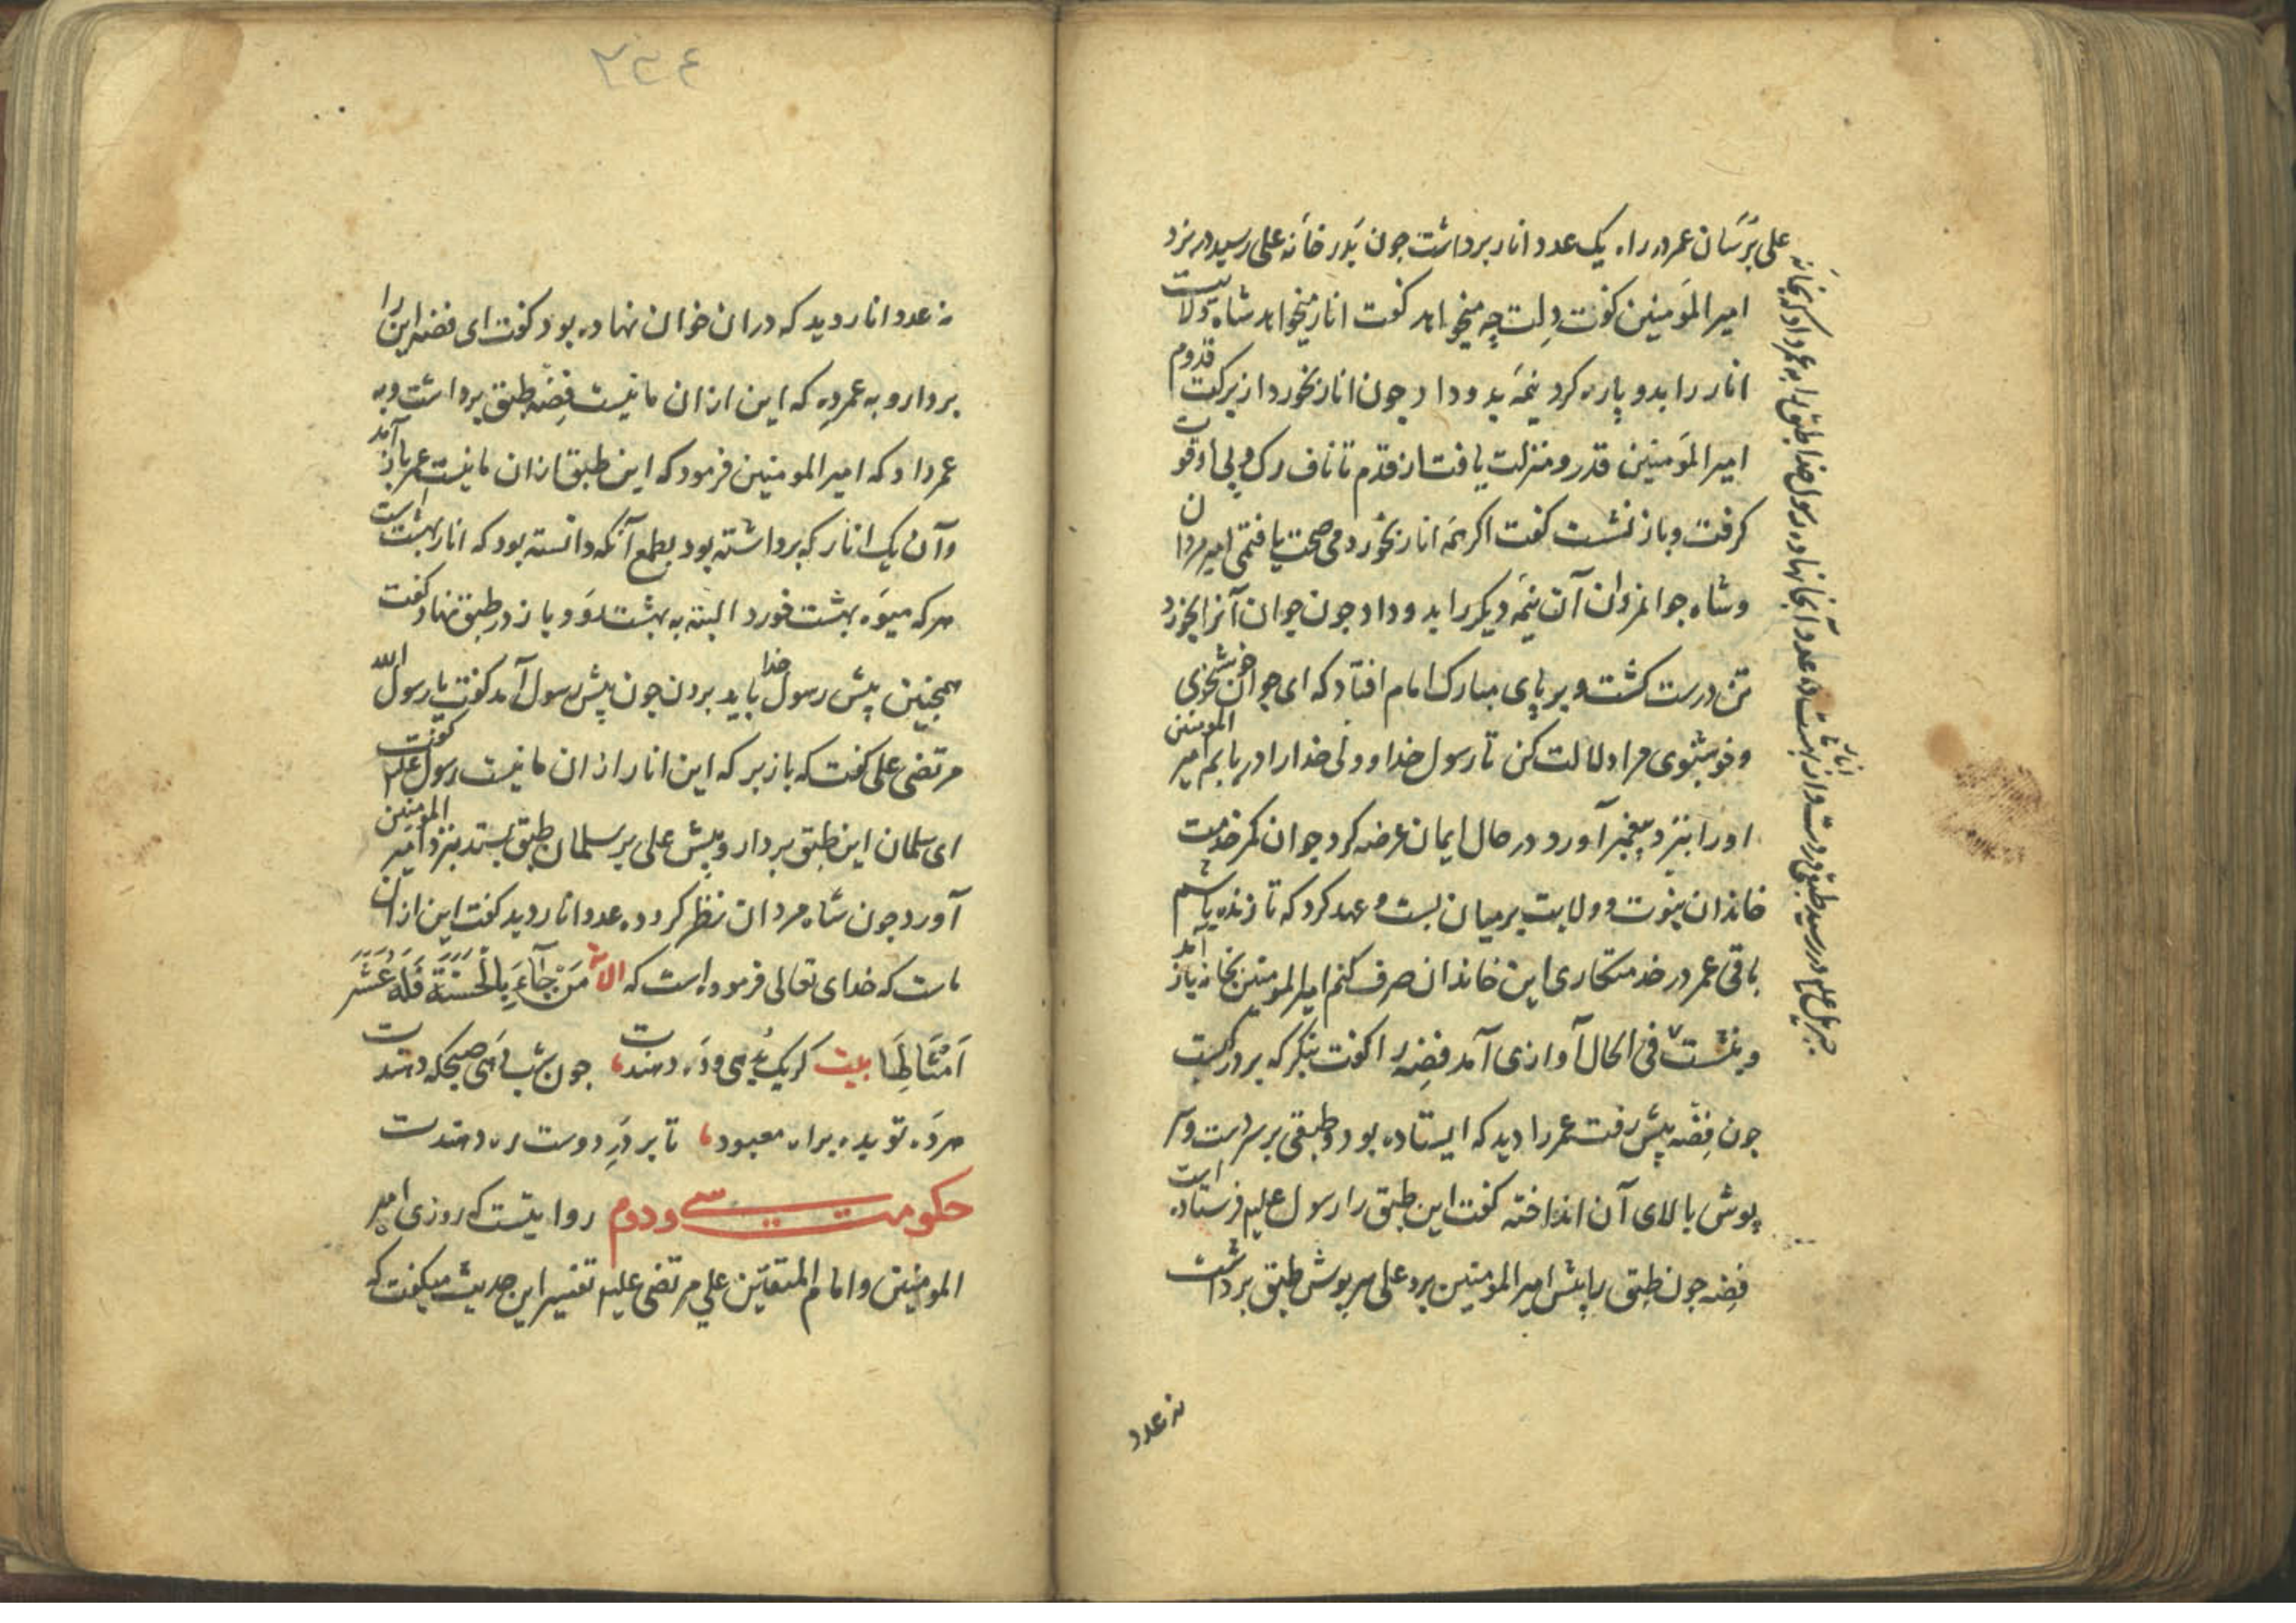 علی برسان عمر در راه یک عدد انار برداشت جون بدر خانه علی رسید در نزد
امیر المومنین کفت دلت چه میخواهد کفت انار میخواهد شاه ولایت
انار را بدو پاره کرد نیمه بدو داد جون انار بخورد از برکت قدوم
امیر المومنین قدر و منزلت یافت از قدم تا ناف رک و پی او قوت
کرفت و باز نشست کفت اکر همه انار بخوردمی صحت یافتمی امیر مردان
و شاه جوانمردان آن نیمه دیکر را بدو داد جون جوان آنرا بخورد
تن درست کشت و بر پای مبارک امام افتاد که ای جوان خوشخوی
و خوشبوی مرا دلالت کن تا رسول خدا و ولی خدا را دریابم امیر المومنین
او را بنزد پیغمبر آورد در حال ایمان عرضه کرد جوان کمر خدمت
خاندان نبوت و ولایت بر میان بست و عهد کرد که تا زنده باشم
باقی عمر در خدمتکاری این خاندان صرف کنم امیر المومنین بخانه باز آمد
و بنشست فی الحال آوازی آمد فضه را کفت بنکر که بر در کیست
جون فضه پیش رفت عمر را دید که ایستاده بود و طبقی بر سر دست و سر
پوش بالای آن انداخته کفت این طبق را رسول علیه فرستاده است
فضه جون طبق را پیش امیر المومنین برد علی سرپوش طبق برداشت
نه عدد
جبریل علیه در رسید طبقی در دست و از بهشت ده عدد انار آنجا نهاده رسول خدا طبق را به عمر داد که بخانه
۲۳۴
نه عدد انار دید که در ان خوان نهاده بود کفت ای فضه این را
بردار و به عمر ده که این از ان ما نیست فضه طبق برداشت و به
عمر داد که امیر المومنین فرمود که این طبق از ان ما نیست عمر باز آمد
و آن یک انار که برداشته بود بطمع آنکه دانسته بود که انار بهشت است
هر که میوه بهشت خورد البته به بهشت رود باز در طبق نهاد کفت
همجنین پیش رسول خدا باید بردن جون پیش رسول آمد کفت یا رسول الله
مرتضی علی کفت که باز بر که این انار از ان ما نیست رسول علیه کفت
ای سلمان این طبق بردار و پیش علی بر سلمان طبق بستد بنزد امیر المومنین
آورد جون شاه مردان نظر کرد ده عدد انار دید کفت این از ان
ماست که خدای تعالی فرموده است که الایه مَنْ جَآءَ بِالْحَسَنَةِ فَلَهُ عَشْرُ
اَمْثَالِهَا بیت کر یک بدهی ده دهندت جون شب بدهی صبحکه دهندت
هر ده تو بده براه معبود تا بر در دوست ره دهندت
حکومت سی و دوم روایتست که روزی امیر
المومنین و امام المتقین علی مرتضی علیه تفسیر این حدیث میکفت که